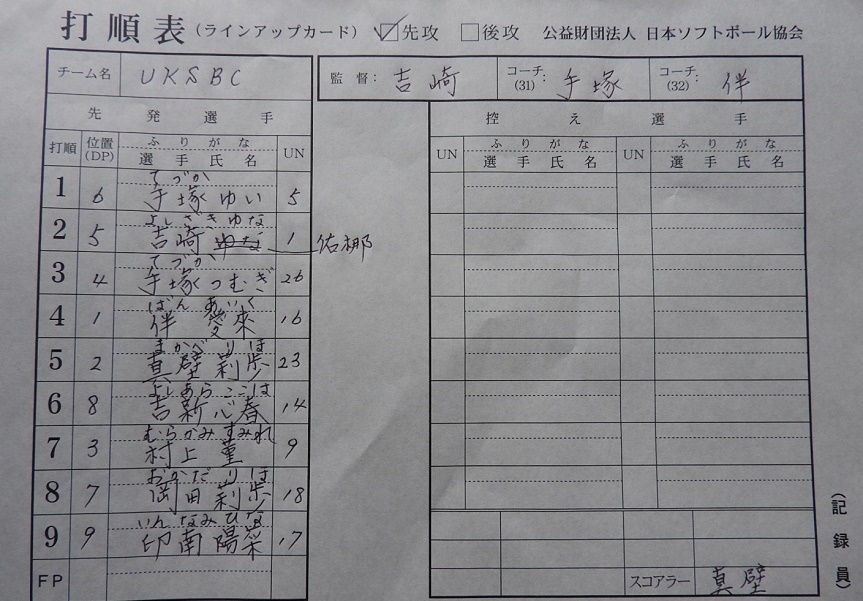 打順表(ラインアップカード) ☑先攻 □後攻 公益財団法人 日本ソフトボール協会
チーム名 UKSBC
監督: 吉崎 コーチ: (31) 手塚 コーチ: (32) 伴
先発選手
打順 位置(DP) ふりがな 選手氏名 UN
てづか
1 6 手塚ゆい 5
よしざきゆな
2 5 吉崎ゆな 1 佑梛
てづか
3 4 手塚つむぎ 26
ばん あいく
4 1 伴 愛來 16
まかべりほ
5 2 真壁莉歩 23
よしあらここは
6 8 吉新心春 14
むらかみすみれ
7 3 村上 菫 9
おかだりほ
8 7 岡田莉歩 18
いんなみひな
9 9 印南陽菜 17
FP
控え選手
UN ふりがな 選手氏名 UN ふりがな 選手氏名
スコアラー 真壁
(記録員)